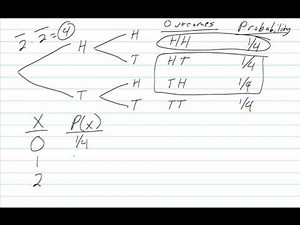 2 · 2 = 4
Outcomes Probability
H HH 1/4
H
T HT 1/4
H TH 1/4
T
T TT 1/4
X P(x)
0 1/4
1
2